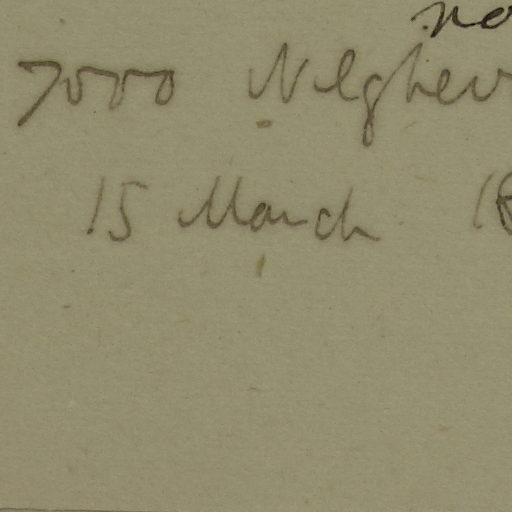 no
7000 Nilgher
15 March 18